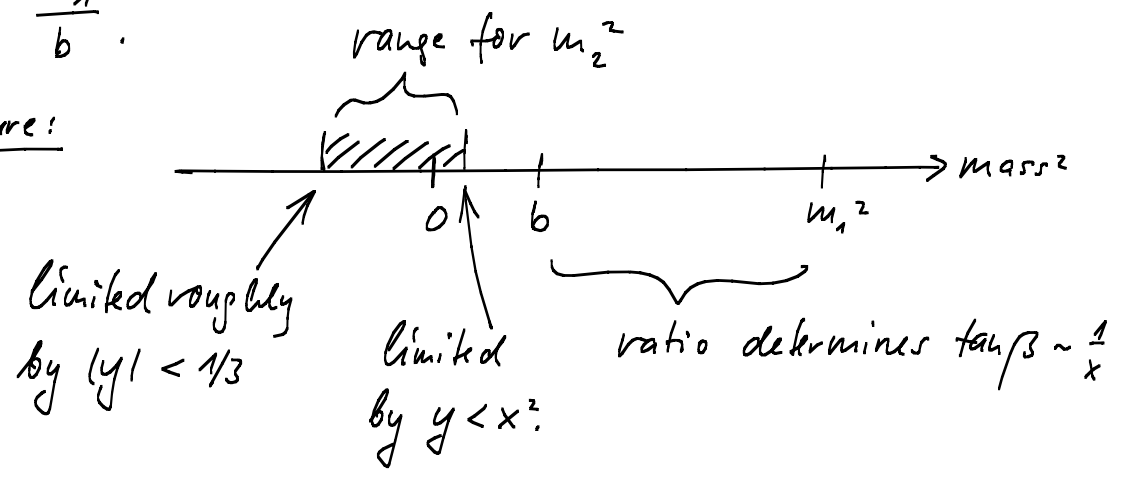 b .
range for m₂²
mass²
0 b m₁²
limited roughly
by |y| < 1/3
limited
by y < x².
ratio determines tanβ ~ 1/x